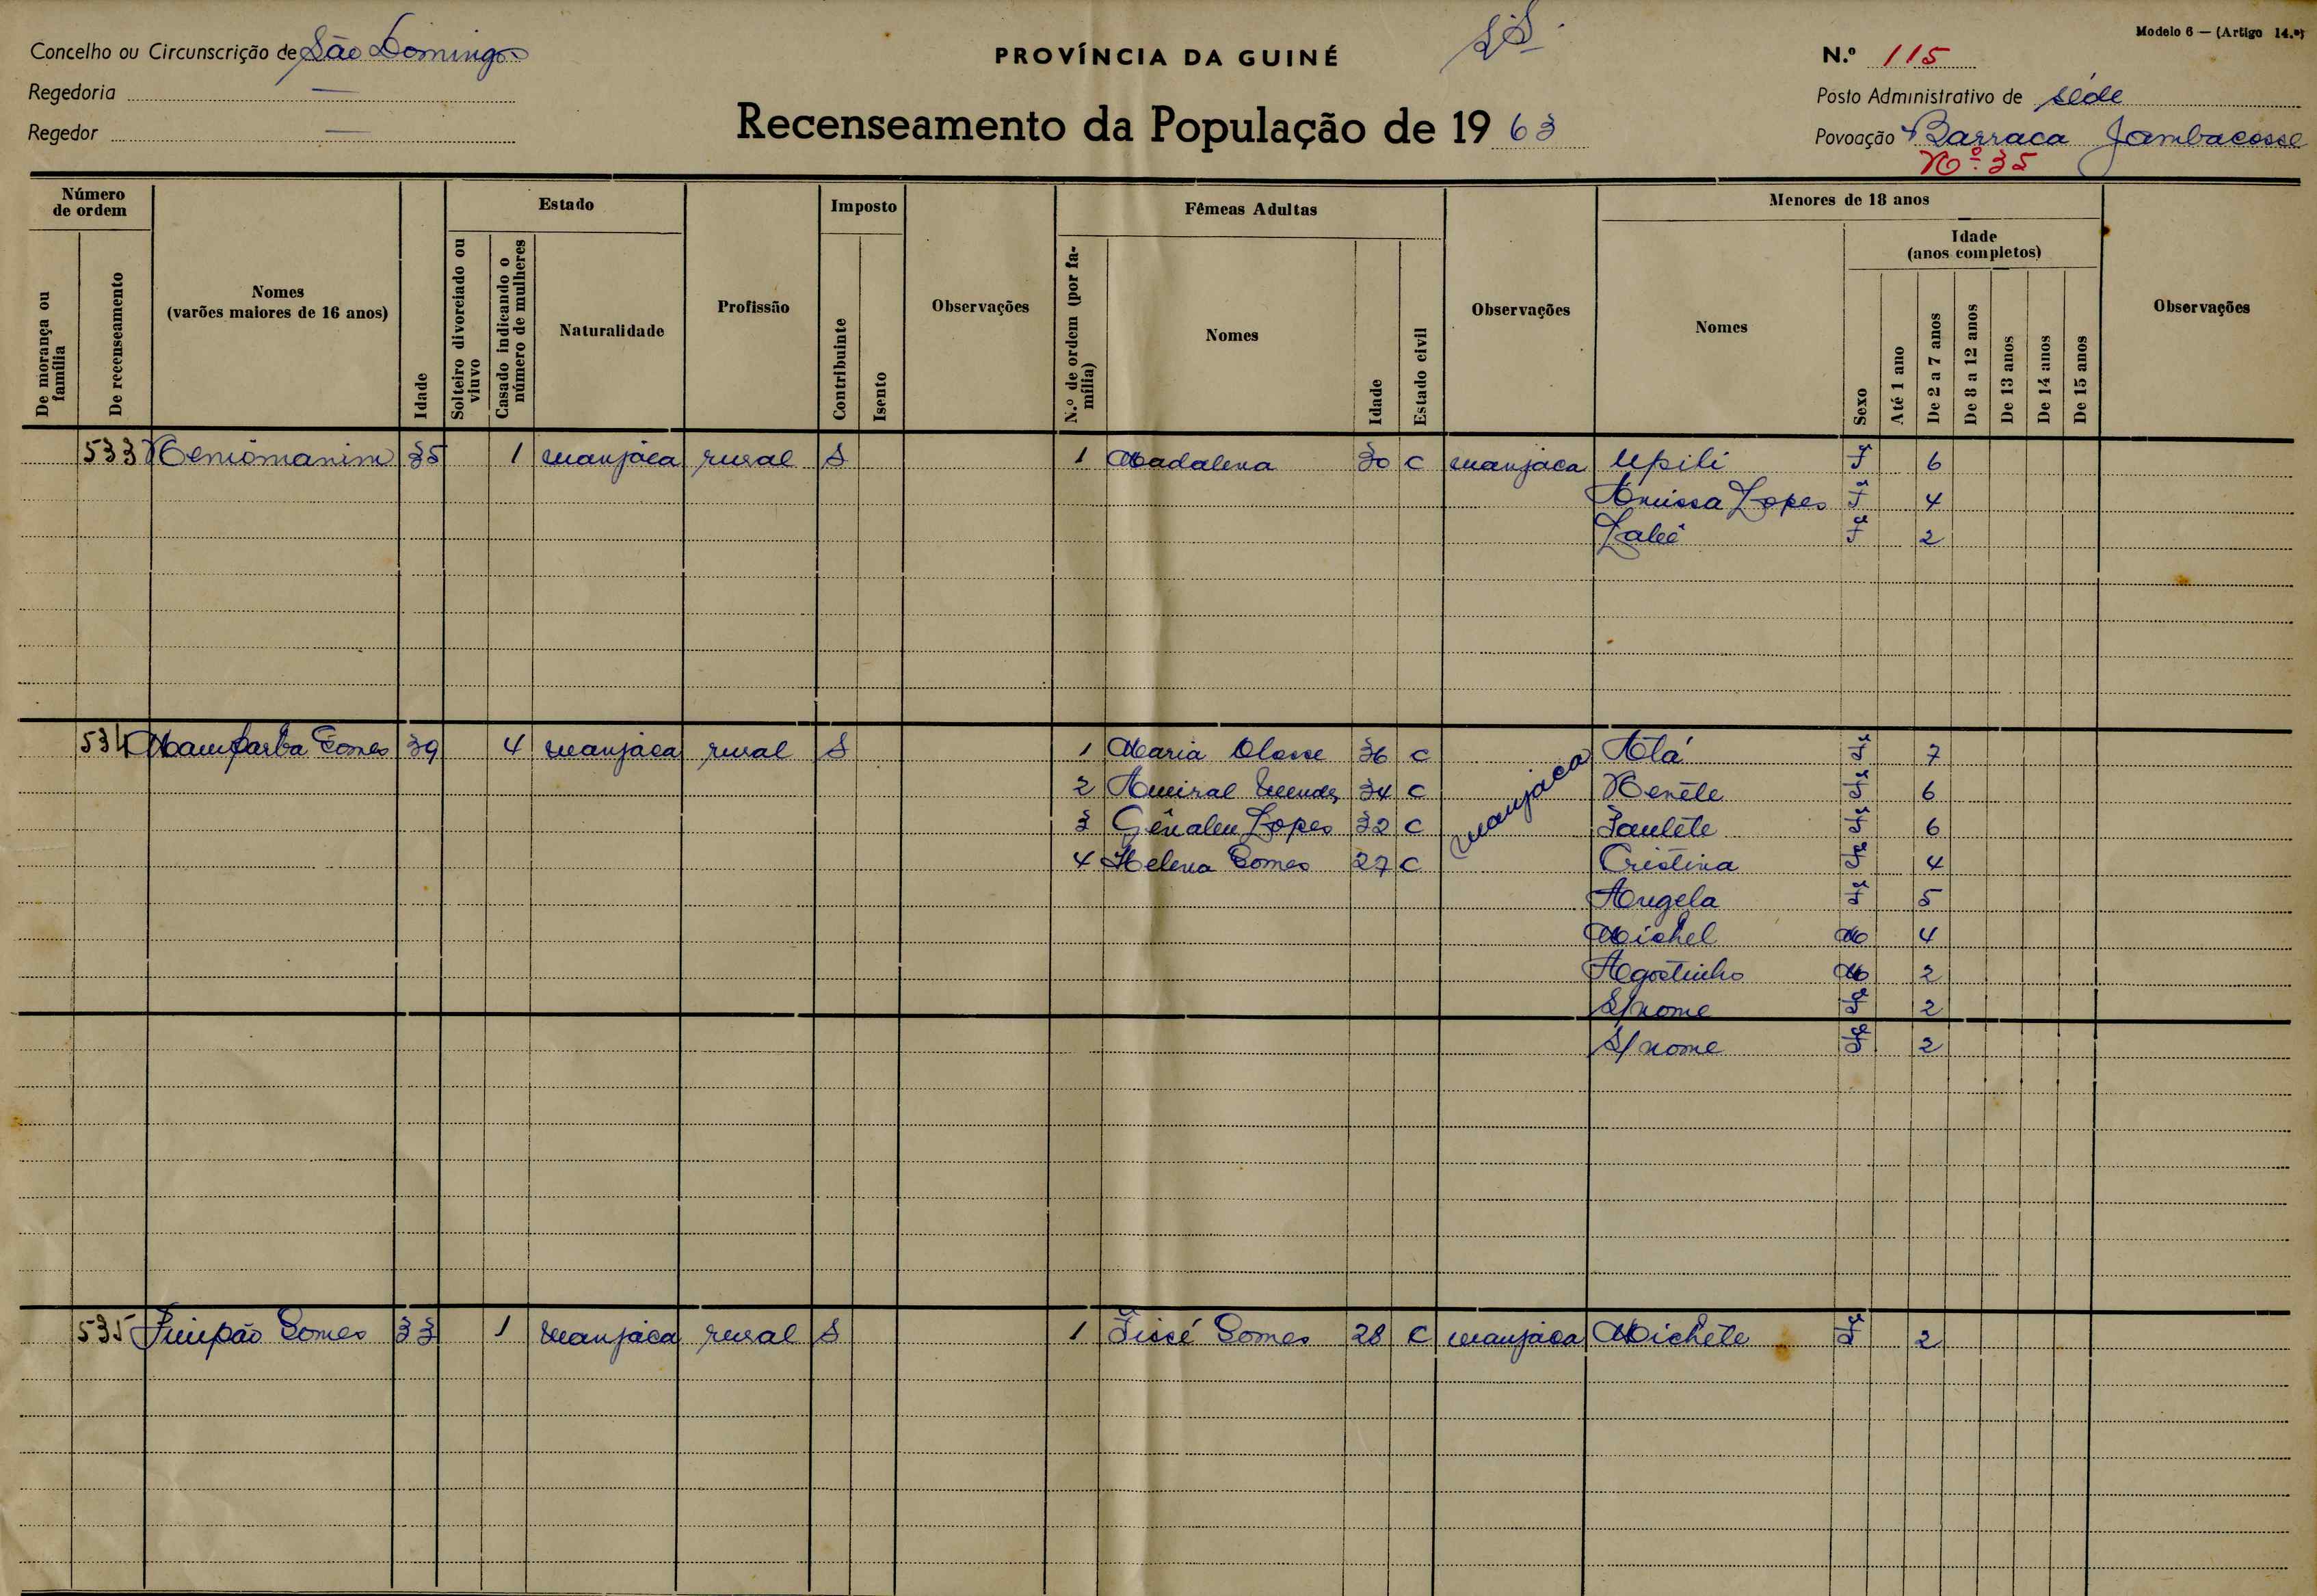 Modelo 6 — (Artigo 14.º)
Concelho ou Circunscrição de São Domingos
PROVÍNCIA DA GUINÉ
N.º 115
Regedoria —
Posto Administrativo de séde
Regedor —
Recenseamento da População de 1963
Povoação Barraca Jambacosse
Nº 35
Número de ordem
De morança ou família
De recenseamento
Nomes
(varões maiores de 16 anos)
Idade
Estado
Solteiro divorciado ou viuvo
Casado indicando o número de mulheres
Naturalidade
Profissão
Imposto
Contribuinte
Isento
Observações
Fêmeas Adultas
N.º de ordem (por família)
Nomes
Idade
Estado civil
Observações
Menores de 18 anos
Nomes
Sexo
Idade
(anos completos)
Até 1 ano
De 2 a 7 anos
De 8 a 12 anos
De 13 anos
De 14 anos
De 15 anos
Observações
533 Neniomanim 35 1 manjaca rural S 1 Madalena 30 C manjaca Upili F 6
Anissa Lopes F 4
F 2
534 Gomes 39 4 manjaca rural S 1 Maria Olosse 36 C manjaca Atá F 7
2 Amiral Mendes 34 C Nenete F 6
3 Lopes 32 C Paulete F 6
4 Helena Gomes 27 C Cristina F 4
Angela F 5
Michel M 4
Agostinho M 2
S/nome F 2
S/nome F 2
535 Gomes 33 1 manjaca rural S 1 Gomes 28 C manjaca Michete F 2